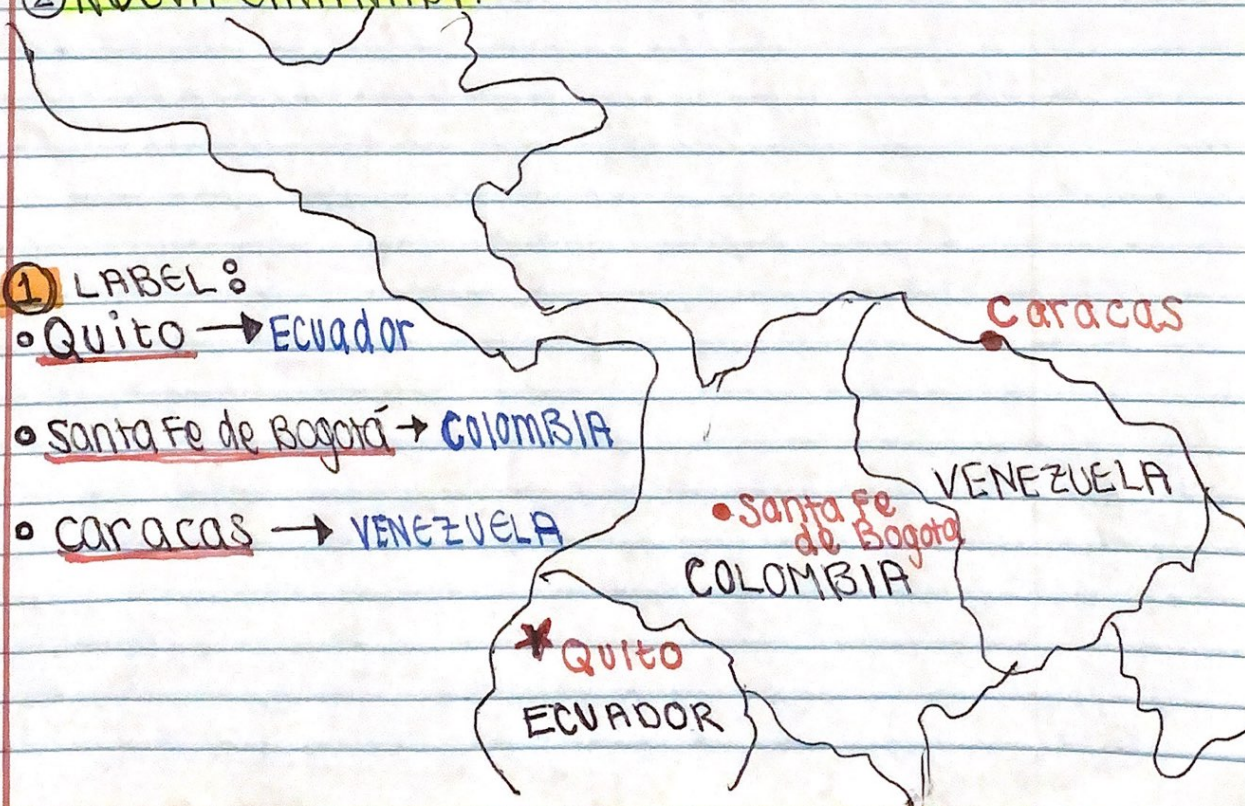 ① LABEL:
• Quito → Ecuador
• Santa Fe de Bogotá → COLOMBIA
• caracas → VENEZUELA
caracas
VENEZUELA
• Santa Fe
de Bogota
COLOMBIA
Quito
ECUADOR